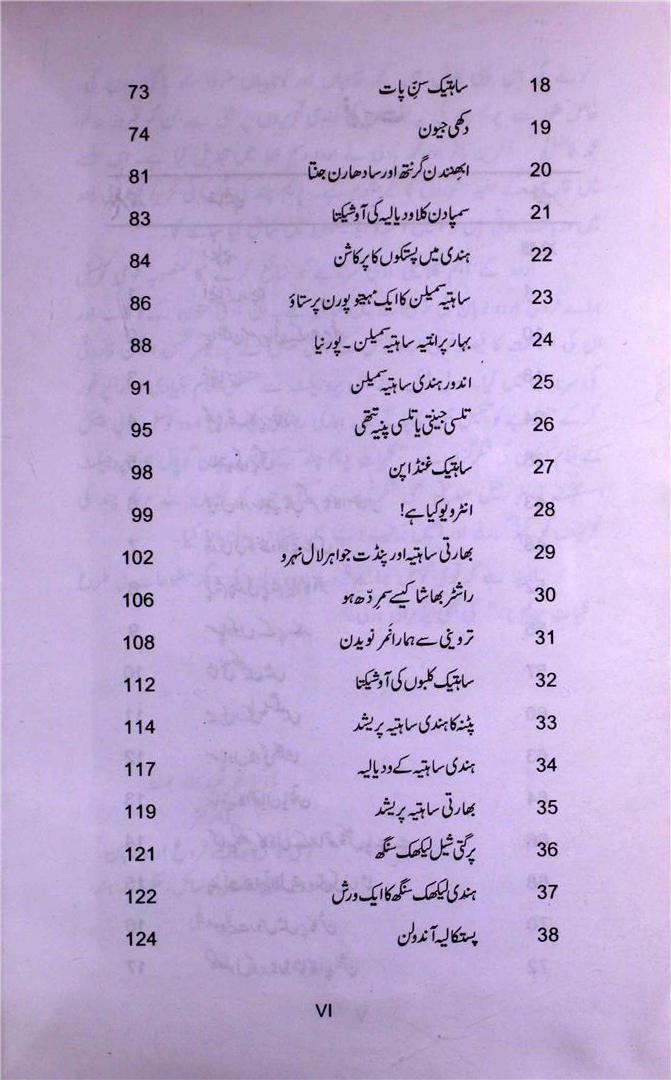 18 ساہتیک سنِ پات 73
19 دکھی جیون 74
20 ابھنندن گرنتھ اور سادھارن جنتا 81
21 سمپادن کلا ودیالیہ کی آوشیکتا 83
22 ہندی میں پستکوں کا پرکاشن 84
23 ساہتیہ سمیلن کا ایک مہتیو پورن پرستاؤ 86
24 بہار پرانتیہ ساہتیہ سمیلن ۔ پورنیا 88
25 اندور ہندی ساہتیہ سمیلن 91
26 تلسی جینتی یا تلسی پنیہ تتھی 95
27 ساہتیک غنڈاپن 98
28 انٹرویو کیا ہے! 99
29 بھارتی ساہتیہ اور پنڈت جواہر لال نہرو 102
30 راشٹر بھاشا کیسے سمردّھ ہو 106
31 تروینی سے ہمارا نمر نویدن 108
32 ساہتیک کلبوں کی آوشیکتا 112
33 پٹنہ کا ہندی ساہتیہ پریشد 114
34 ہندی ساہتیہ کے ودیالیہ 117
35 بھارتی ساہتیہ پریشد 119
36 پرگتی شیل لیکھک سنگھ 121
37 ہندی لیکھک سنگھ کا ایک ورش 122
38 پستکالیہ آندولن 124
VI